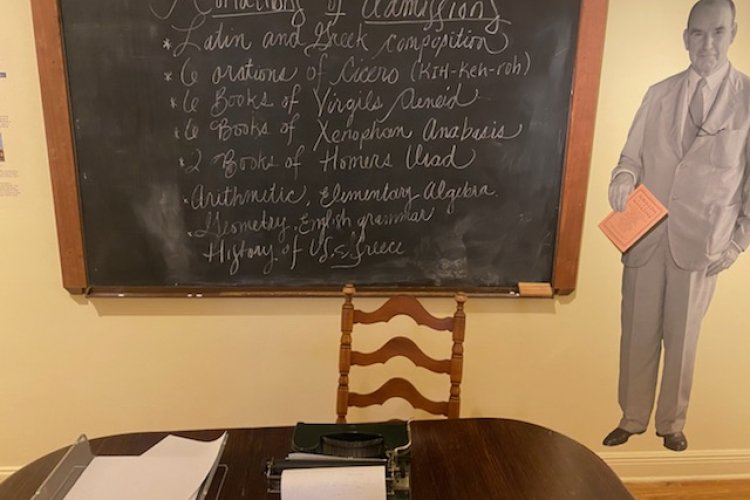 Conditions of Admissions
* Latin and Greek composition
* 6 orations of Cicero (KIH-Keh-roh)
* 6 Books of Virgils Aeneid
* 6 Books of Xenophon Anabasis
* 2 Books of Homers Iliad
* Arithmetic, Elementary Algebra.
* Geometry, English grammar
History of U.S. & Greece